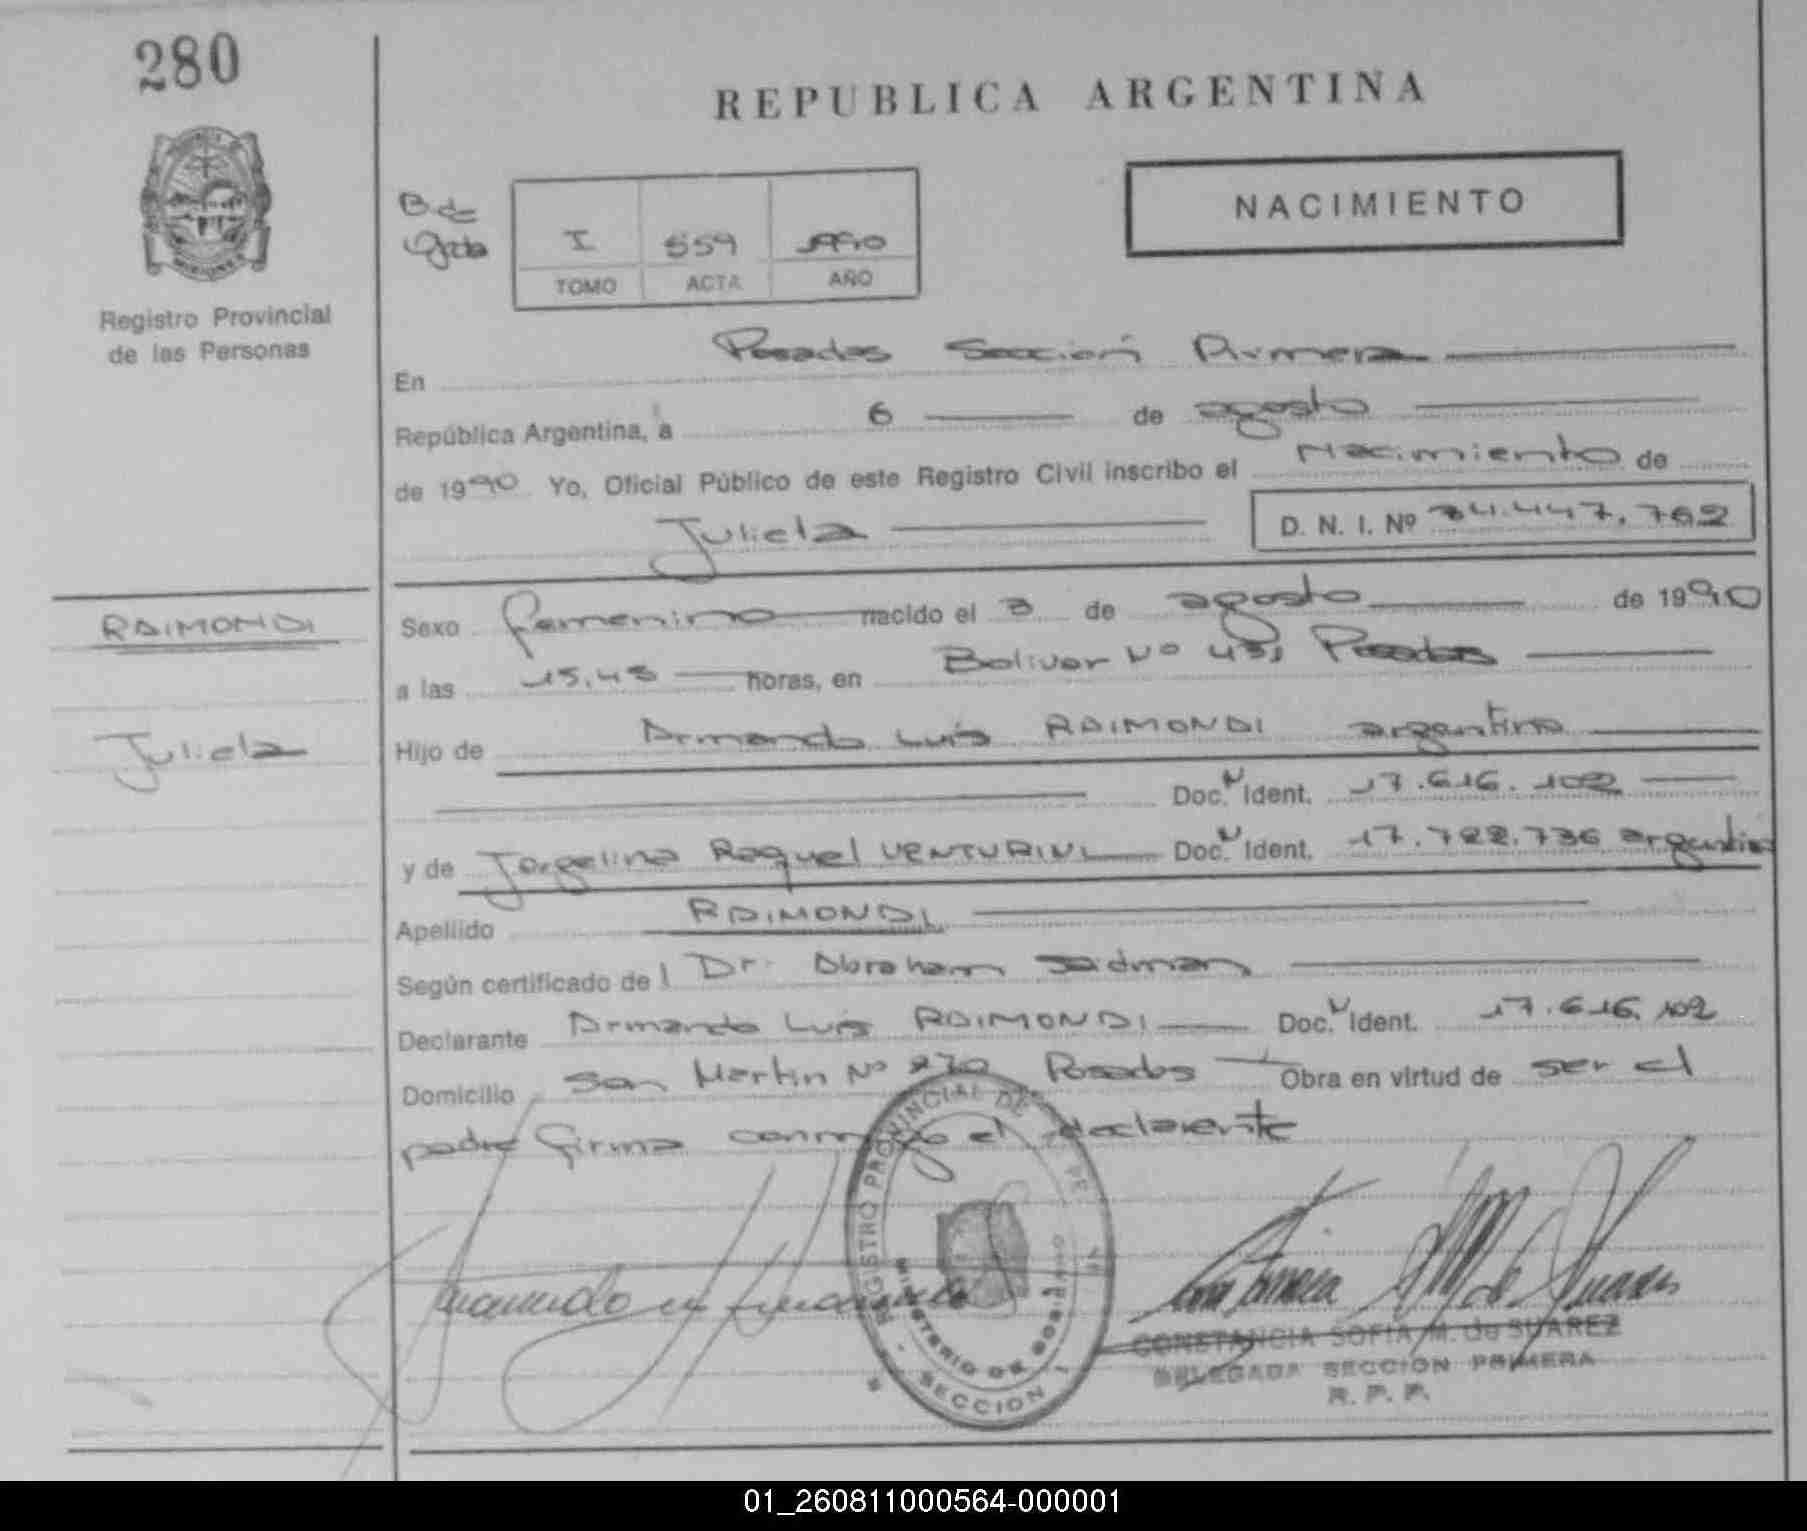 280
REPUBLICA ARGENTINA
NACIMIENTO
B de
I 559 1990
TOMO ACTA AÑO
Registro Provincial
de las Personas
En Posadas Sección Primera
República Argentina, a 6 de agosto
de 1990 Yo, Oficial Público de este Registro Civil inscribo el Nacimiento de
Julieta D. N. I. Nº 34.447.762
RAIMONDI
Julieta
Sexo femenino nacido el 3 de agosto de 1990
a las 15,45 horas, en Bolivar Nº Posadas
Hijo de Armando Luis RAIMONDI argentino
Doc. N Ident. 17.616.102
y de Jorgelina Raquel VENTURINI Doc. N Ident. 17.722.736 argentina
Apellido RAIMONDI
Según certificado del Dr. Abraham Saidman
Declarante Armando Luis RAIMONDI Doc. N Ident. 17.616.102
Domicilio San Martin Nº 270 Posadas Obra en virtud de ser el
padre firma conmigo el declarante
REGISTRO PROVINCIAL DE
MINISTERIO DE
SECCION I
CONSTANCIA SOFIA M. de SUAREZ
DELEGADA SECCION PRIMERA
R. P. P.
01_260811000564-000001